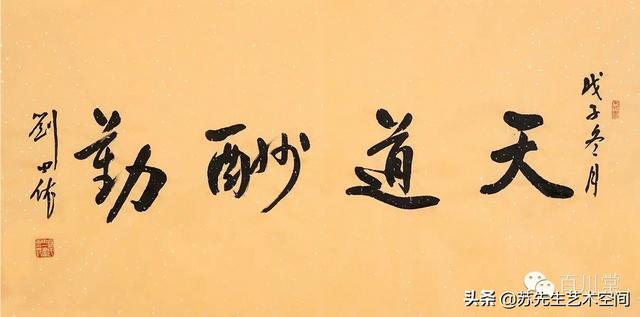 戊子冬月
天道酬勤
劉田依
百川堂
头条 @苏先生艺术空间